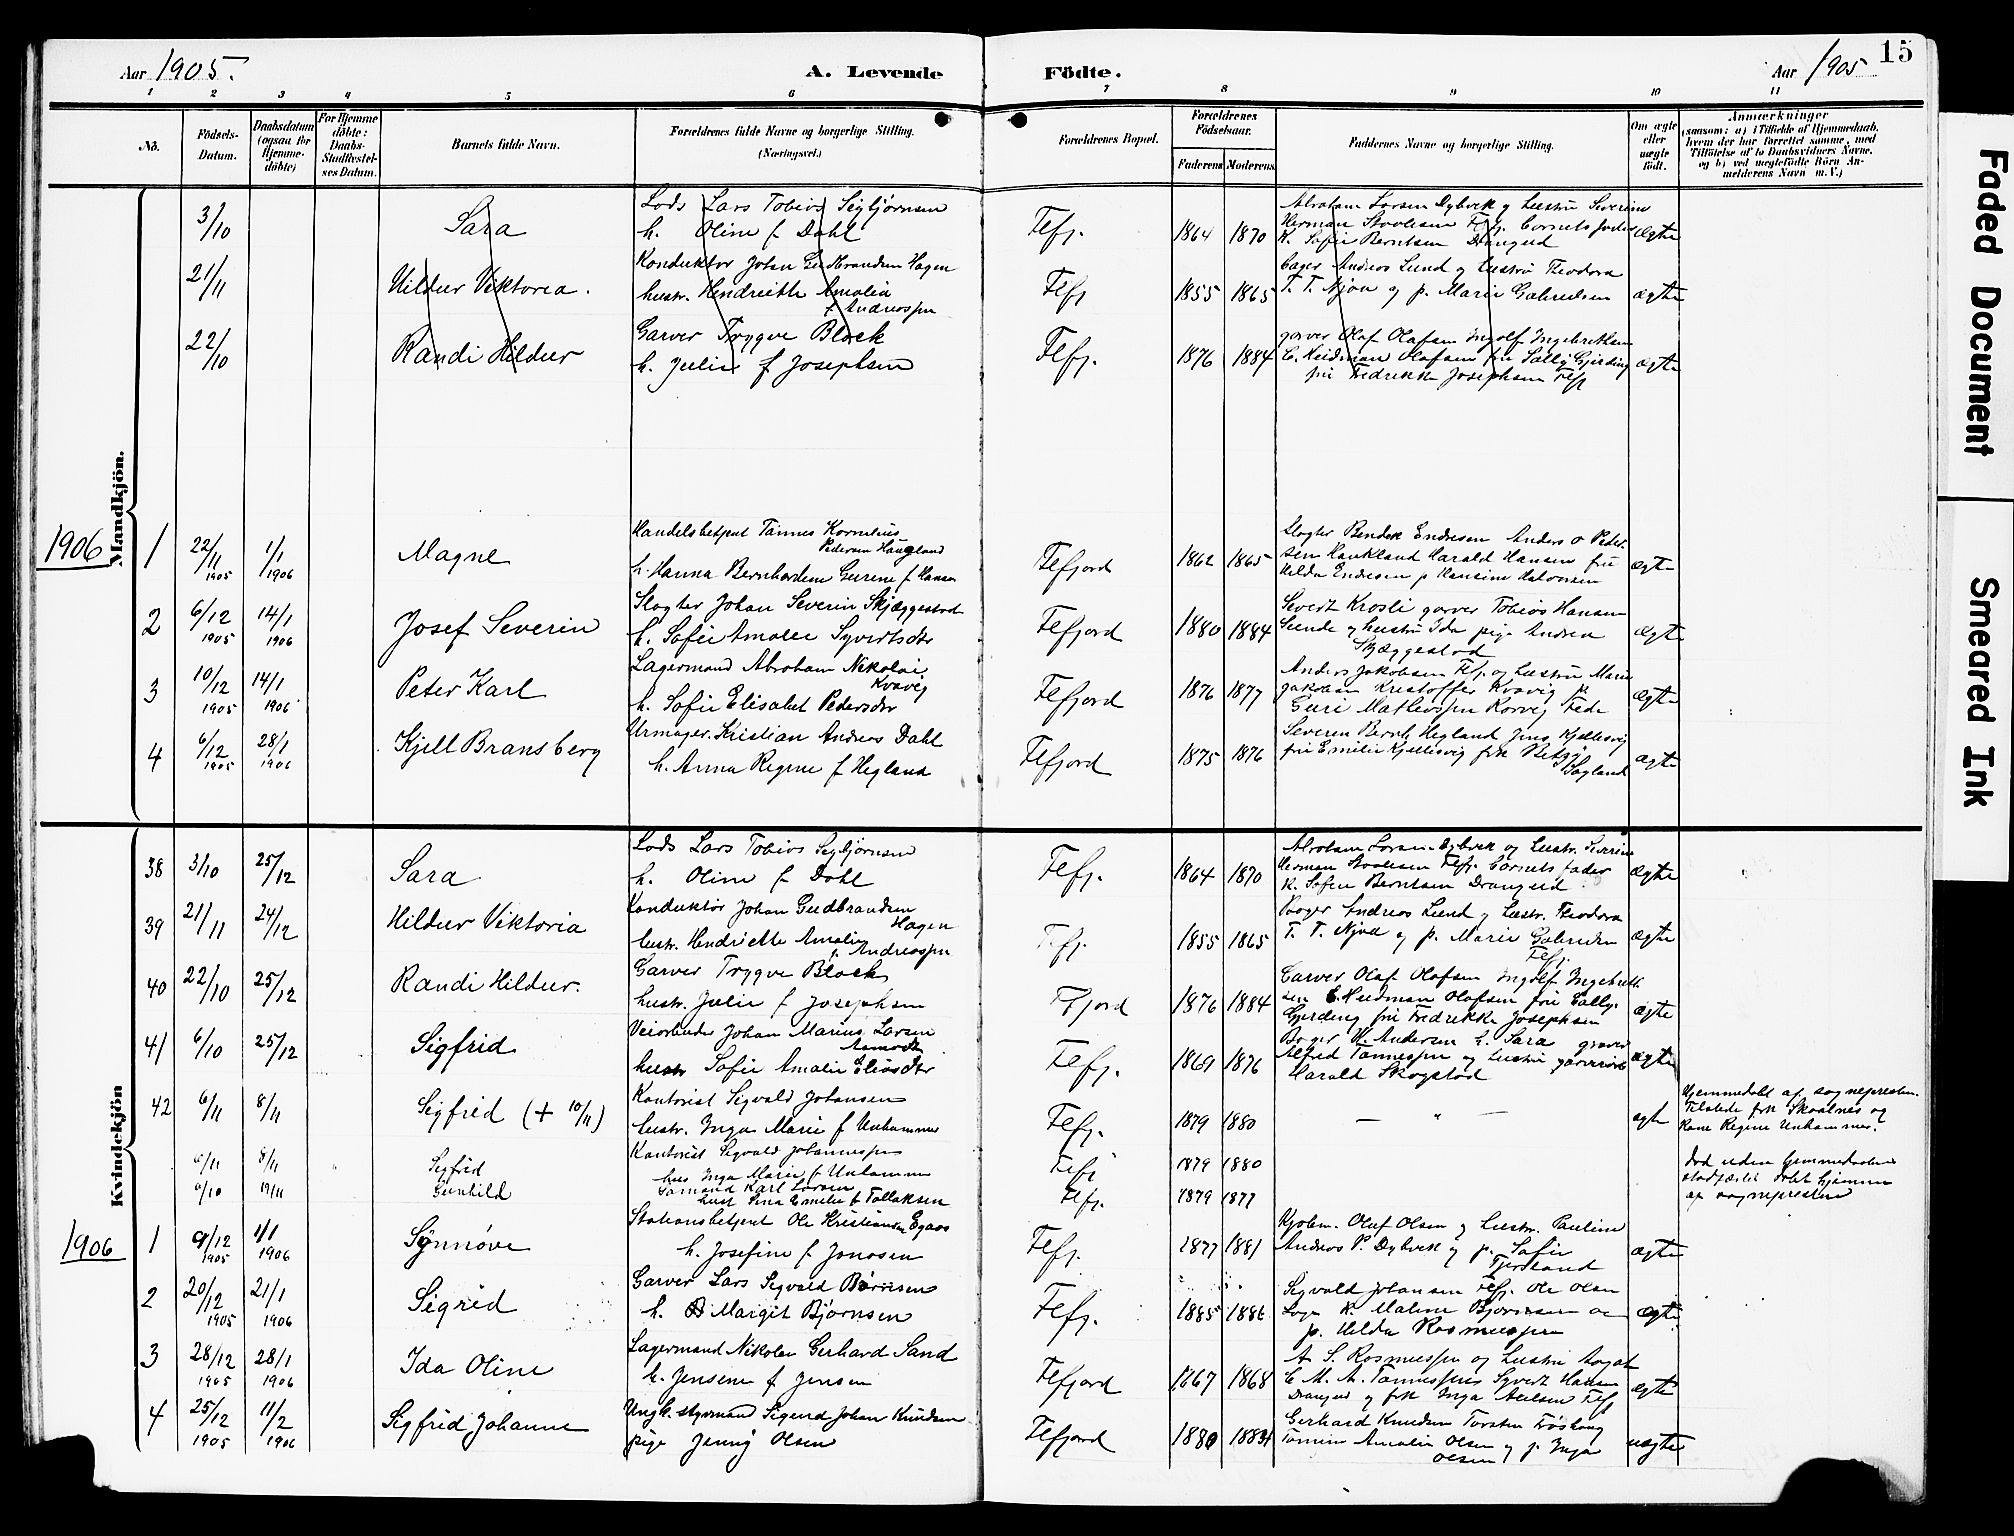 Aar 1905.
A. Levende
Födte.
Aar 1905
15
1 2 3 4 5 6 7 8 9 10 11
No.
Födsels-Datum.
Daabsdatum (ogsaa for Hjemmedöbte)
For Hjemmedöbte: Daabs-Stadfæstelses Datum.
Barnets fulde Navn.
Forældrenes fulde Navne og borgerlige Stilling. (Næringsvei.)
Forældrenes Bopæl.
Forældrenes Födselsaar.
Faderens Moderens
Faddernes Navne og borgerlige Stilling.
Om ægte eller uægte födt.
Anmærkninger
(saasom: a) i Tilfælde af Hjemmedaab, hvem der har forrettet samme, med Tilföielse af to Daabsvidners Navne, og b) ved uægtefödte Börn Anmelderens Navn m. V.)
Mandkjön.
3/10 Sara
Lods Lars Tobias Sigbjørnsen
h. Oline f Dahl
Flefj. 1864 1870
Abraham Larsen Dybvik og hustru Severine
Herman Flefj. Barnets fader
K. Sofie Berntsen Drangeid
ægte
21/11 Hildur Viktoria.
Konduktør Johan Gudbrandsen Hagen
hustr. Henriette Amalia
f Andreassen
Flefj 1855 1865
Andreas Lund og hustru Theodora
T. T. Njaa og p. Marie Gabrielsen
ægte
22/10 Randi Hildur
Garver Trygve Block
h. Julie f Josephsen
Flefj. 1876 1884
garver Olaf Olafsen Ingolf Ingebretsen
Olafsen fru Sally Gjerding
fru Fredrikke Josephsen Flefj
ægte
1906
1 22/11 1905 1/1 1906 Magne
Handelsbetjent Tønnes Kornelius
Pedersen Haugland
h. Hanna Bernhardine Gurine f Hansen
Flefjord 1862 1865
Slagter Bendik Endresen Anders O Peder-
sen Haukland Harald Hansen fru
Hilda Endresen p Hansine Halvorsen
ægte
2 6/12 1905 14/1 1906 Josef Severin
Slagter Johan Severin Skjæggestad
h. Sofie Amalie Syvertsdtr
Flefjord 1880 1884
Severt Krosli garver Tobias Hansen
Lunde og hustru Ida pige Andrea
Skjæggestad
ægte
3 10/12 1905 14/1 1906 Peter Karl
Lagermand Abraham Nikolai
Kvavig
h. Sofie Elisabet Pedersdtr
Flefjord 1876 1877
Anders Jakobsen Flfj. og hustru Marie
Jakobsen Kristoffer Kvavig p.
Guri Mathiassen Korvig Fede
ægte
4 6/12 1905 28/1 1906 Kjell Bransberg
Urmager Kristian Andreas Dahl
h. Anna Regine f Hegland
Flefjord 1875 1876
Severin Bernh. Hegland Jens Kjellesvig
fru Emilie Kjellesvig frk Betzy
Søyland
ægte
Kvindekjön
38 3/10 25/12 Sara
Lods Lars Tobias Sigbjørnsen
h. Oline f Dahl
Flefj. 1864 1870
Abraham Larsen Dybvik og hustr. Severine
Herman Flefj. Barnets fader
K. Sofie Berntsen Drangeid
ægte
39 21/11 24/12 Hildur Viktoria
Konduktør Johan Gudbrandsen
Hagen
hustr. Henriette Amalie
f. Andreassen
Flefj. 1855 1865
Andreas Lund og hustr. Theodora
T. T. Njaa og p. Marie Gabrielsen
Flefj.
ægte
40 22/10 25/12 Randi Hildur.
Garver Trygve Block
hustr. Julie f Josephsen
Flfjord 1876 1884
Garver Olaf Olafsen Ingolf Ingebrett-
sen Olafsen fru Sally
Gjerding fru Fredrikke Josephsen
ægte
41 6/10 25/12 Sigfrid
Johan Marius Larsen
hustr Sofie Amalie Eliasdtr
Flefj. 1869 1876
Bager H. Andersen h. Sara graver
Alfred Tønnessen og hustru
Harald Skogstad
ægte
42 6/11 8/11 Sigfrid (+ 10/11)
Kontorist Sigvald Johansen
hustr. Inga Marie f Unhammer
Flefj. 1879 1880
— " —
ægte
Hjemmedøbt af sognepresten.
Tilstede frk Skaalnes og
Kone Regine Unhammer.
6/11 8/11 Sigfrid
Kontorist Sigvald Johannessen
hus Inga Marie f Unhammer
Flefj 1879 1880
6/10 19/11 Gunhild
Sømand Karl Larsen
hust Sina Emelie f Tollaksen
Flefj. 1879 1877
død uden hjemmedaabens
stadfæstet døbt hjemme
af sognepresten
1906
1 9/12 1905 1/1 1906 Synnøve
Stationsbetjent Ole Kristiansen Egaas
h. Josefine f Jonassen
Flefj. 1877 1881
Kjøbm. Oluf Olsen og hustr. Pauline
Andreas P. Dybvik og p. Sofie
Fjeseland
ægte
2 20/12 1905 21/1 1906 Sigrid
Garver Lars Sigvald Børresen
h. Margit Bjørnsen
Flefj. 1885 1886
Sigvald Johansen Flefj. Ole Olsen
Loga K. Maline Bjørnsen og
p. Hilda Rasmussen
ægte
3 28/12 1905 28/1 1906 Ida Oline
Lagermand Nikolai Gerhard Sand
h. Jensene f Jensen
Flefjord 1867 1868
A. S. Rasmussen og hustru Aagot
E. M. A. Tønnessen Syvert Hansen
Drangeid og frk Inga Aulsen Flfj
ægte
4 25/12 1905 11/2 1906 Sigfrid Johanne
Ungk. styrmand Sigurd Johan Knudsen
pige Jenny Olsen
Flefjord 1880 1883
Gerhard Knudsen Torsten Frøskog
Tomine Amalia Olsen og p. Inga
Olsen
uægte
Faded Document
Smeared Ink